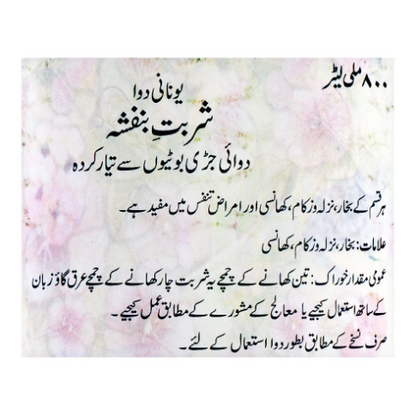 ۸۰۰ ملی لیٹر
یونانی دوا
شربتِ بنفشہ
دوائی جڑی بوٹیوں سے تیار کردہ
ہر قسم کے بخار، نزلہ و زکام، کھانسی اور امراض تنفس میں مفید ہے۔
علامات: بخار، نزلہ و زکام، کھانسی
عمومی مقدار خوراک: تین کھانے کے چمچے یہ شربت چار کھانے کے چمچے عرق گاؤ زبان
کے ساتھ استعمال کیجیے یا معالج کے مشورے کے مطابق عمل کیجیے۔
صرف نسخے کے مطابق بطور دوا استعمال کے لئے۔